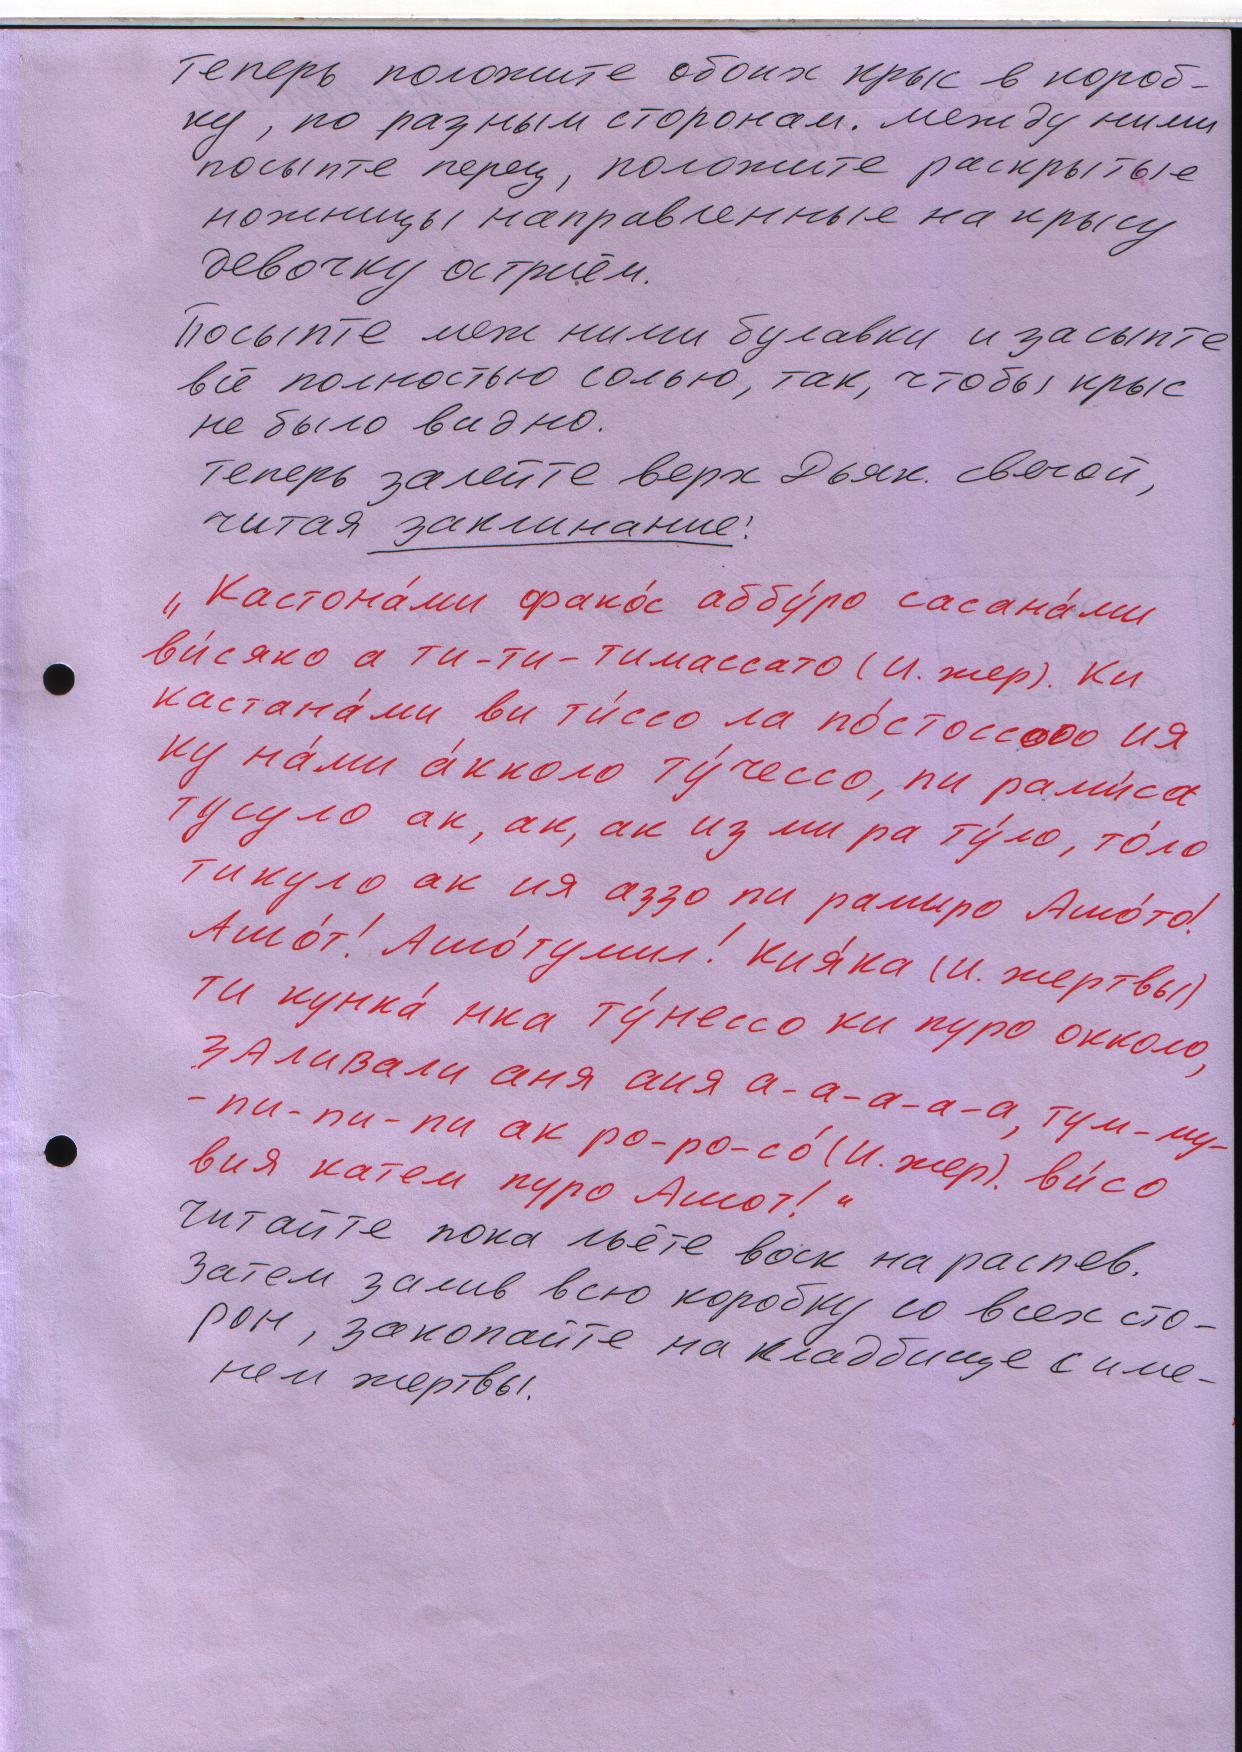 Теперь положите обоих крыс в короб-
ку, по разным сторонам. между ними
посыпте перец, положите раскрытые
ножницы направленные на крысу
девочку остриём.
Посыпте меж ними булавки и засыпте
всё полностью солью, так, чтобы крыс
не было видно.
Теперь залейте верх Дьяк. свечой,
читая заклинание:
„Кастона́ми фако́с аббу́ро сасана́ми
ви́сяко а ти-ти-тимассато (И. жер). Ки
кастана́ми ви ти́ссо ла по́стоссооо ия
ку на́ми а́кколо ту́чессо, пи рами́са
тусуло ак, ак, ак из ми ра ту́ло, то́ло
тикуло ак ия аззо пи рамиро Ашо́то!
Ашо́т! Ашо́тумил! Кия́ка (И. жертвы)
ти кунка́ нка ту́нессо ки пуро окколо,
зАливали аня аия а-а-а-а-а, тум-му-
-пи-пи-пи ак ро-ро-со́ (И. жер). ви́со
вия катем пуро Ашот!“
Читайте пока льёте воск на распев.
Затем залив всю коробку со всех сто-
рон, закопайте на кладбище с име-
нем жертвы.